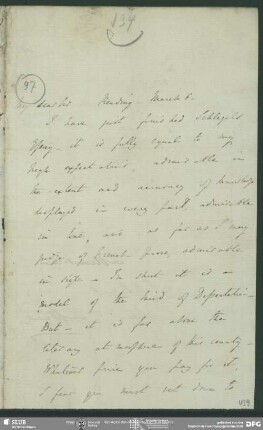 134
97
My dear Sir Reading March 6.
I have just finished Schlegel's
Essay. it is fully equal to my
high expectations, admirable in
the extent and accuracy of knowledge
displayed in every part, admirable
in and as far as I may
judge of French prose, admirable
in style - In short it is a
model of the kind of Dissertation -
But - it is far above the
literary atmosphere of this country -
Whatever price you pay for it,
I fear you must set down to
SLUB
DFG